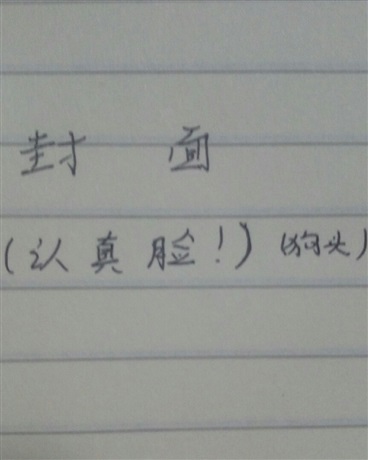 封面
(认真脸!)(狗头)